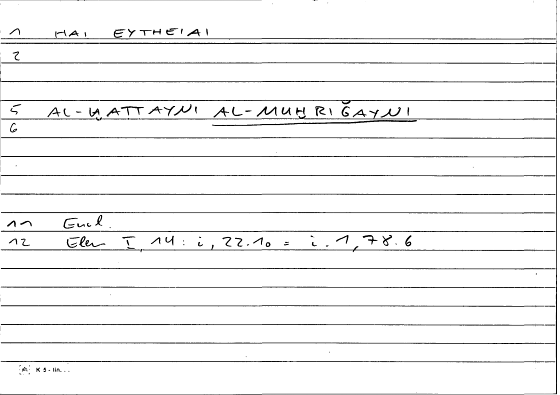 1 HAI EYTHEIAI
2
5 AL-ḪATTAYNI AL-MUḪRIǦAYNI
6
11 Eucl.
12 Elem I, 14 : i, 22.10 = i.1,78.6
K 5 - lin...